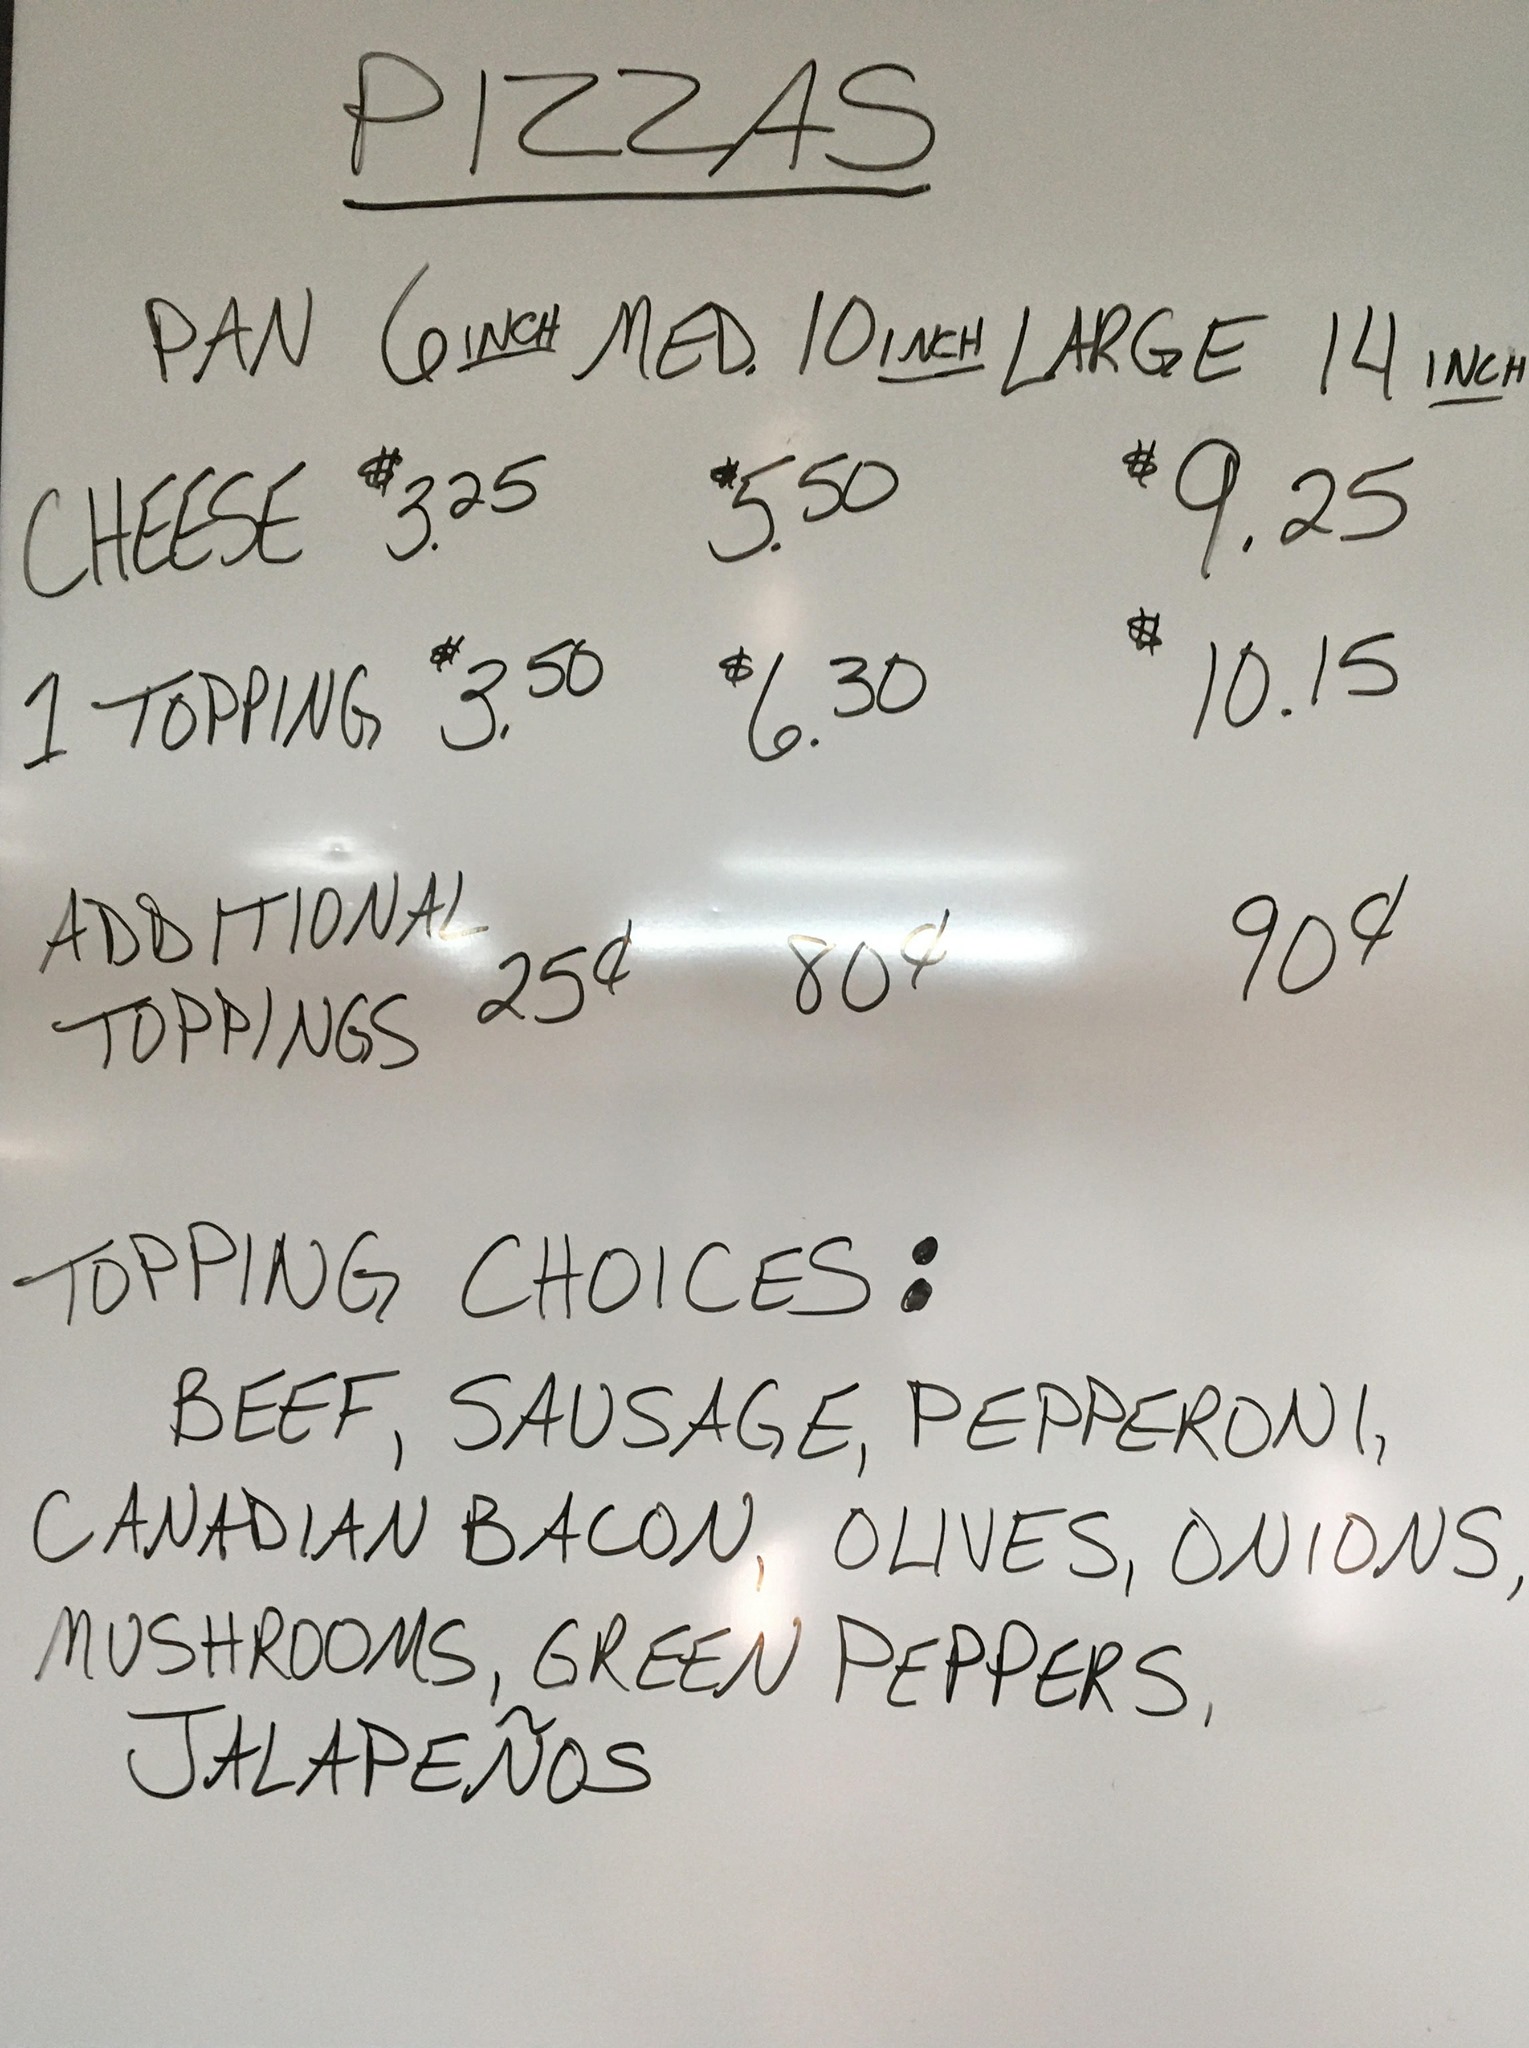 PIZZAS
PAN 6 INCH MED. 10 INCH LARGE 14 INCH
CHEESE $3.25 $5.50 $9.25
1 TOPPING $3.50 $6.30 $10.15
ADDITIONAL
TOPPINGS 25¢ 80¢ 90¢
TOPPING CHOICES:
BEEF, SAUSAGE, PEPPERONI,
CANADIAN BACON, OLIVES, ONIONS,
MUSHROOMS, GREEN PEPPERS,
JALAPEÑOS